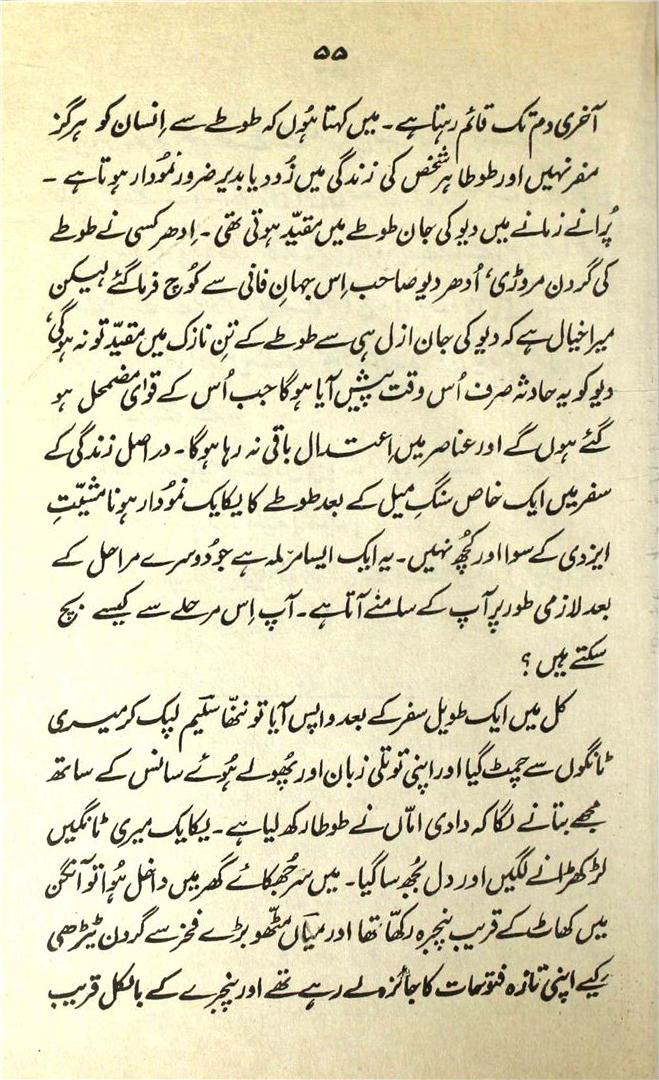 ۵۵
آخری دم تک قائم رہتا ہے ۔ میں کہتا ہُوں کہ طوطے سے اِنسان کو ہرگز
مفر نہیں اور طوطا ہر شخص کی زندگی میں زُود یا بدیر ضرور نمُودار ہوتا ہے ۔
پُرانے زمانے میں دیو کی جان طوطے میں مقیّد ہوتی تھی ۔ اِدھر کسی نے طوطے
کی گردن مروڑی، اُدھر دیو صاحب اِس جہانِ فانی سے کُوچ فرما گئے لیکن
میرا خیال ہے کہ دیو کی جان ازل ہی سے طوطے کے تنِ نازک میں مقیّد تو نہ ہوگی،
دیو کو یہ حادثہ صرف اُس وقت پیش آیا ہوگا جب اُس کے قوائ مضمحل ہو
گئے ہوں گے اور عناصر میں اِعتدال باقی نہ رہا ہوگا ۔ دراصل زندگی کے
سفر میں ایک خاص سنگِ میل کے بعد طوطے کا یکایک نمُودار ہونا مشیّتِ
ایزدی کے سوا اور کُچھ نہیں ۔ یہ ایک ایسا مرحلہ ہے جو دُوسرے مراحل کے
بعد لازمی طور پر آپ کے سامنے آتا ہے ۔ آپ اِس مرحلے سے کیسے بچ
سکتے ہیں ؟
کل میں ایک طویل سفر کے بعد واپس آیا تو ننھّا سلیم لپک کر میری
ٹانگوں سے چمٹ گیا اور اپنی توتلی زبان اور پھُولے ہُوئے سانس کے ساتھ
مجھے بتانے لگا کہ دادی امّاں نے طوطا رکھ لیا ہے ۔ یکایک میری ٹانگیں
لڑکھڑانے لگیں اور دل بُجھ سا گیا ۔ میں سر جُھکائے گھر میں داخل ہُوا تو آنگن
میں کھاٹ کے قریب پنجرہ رکھّا تھا اور میاں مٹّھو بڑے فخر سے گردن ٹیڑھی
کیے اپنی تازہ فتوحات کا جائزہ لے رہے تھے اور پنجرے کے بالکل قریب